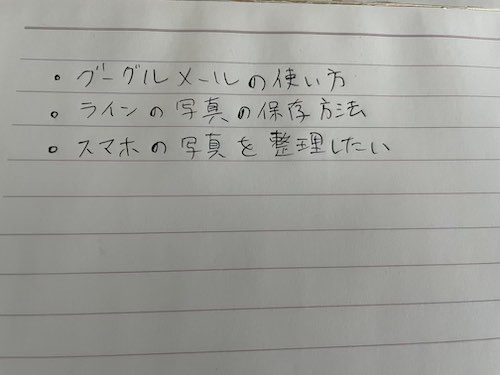 ・グーグルメールの使い方
・ラインの写真の保存方法
・スマホの写真を整理したい